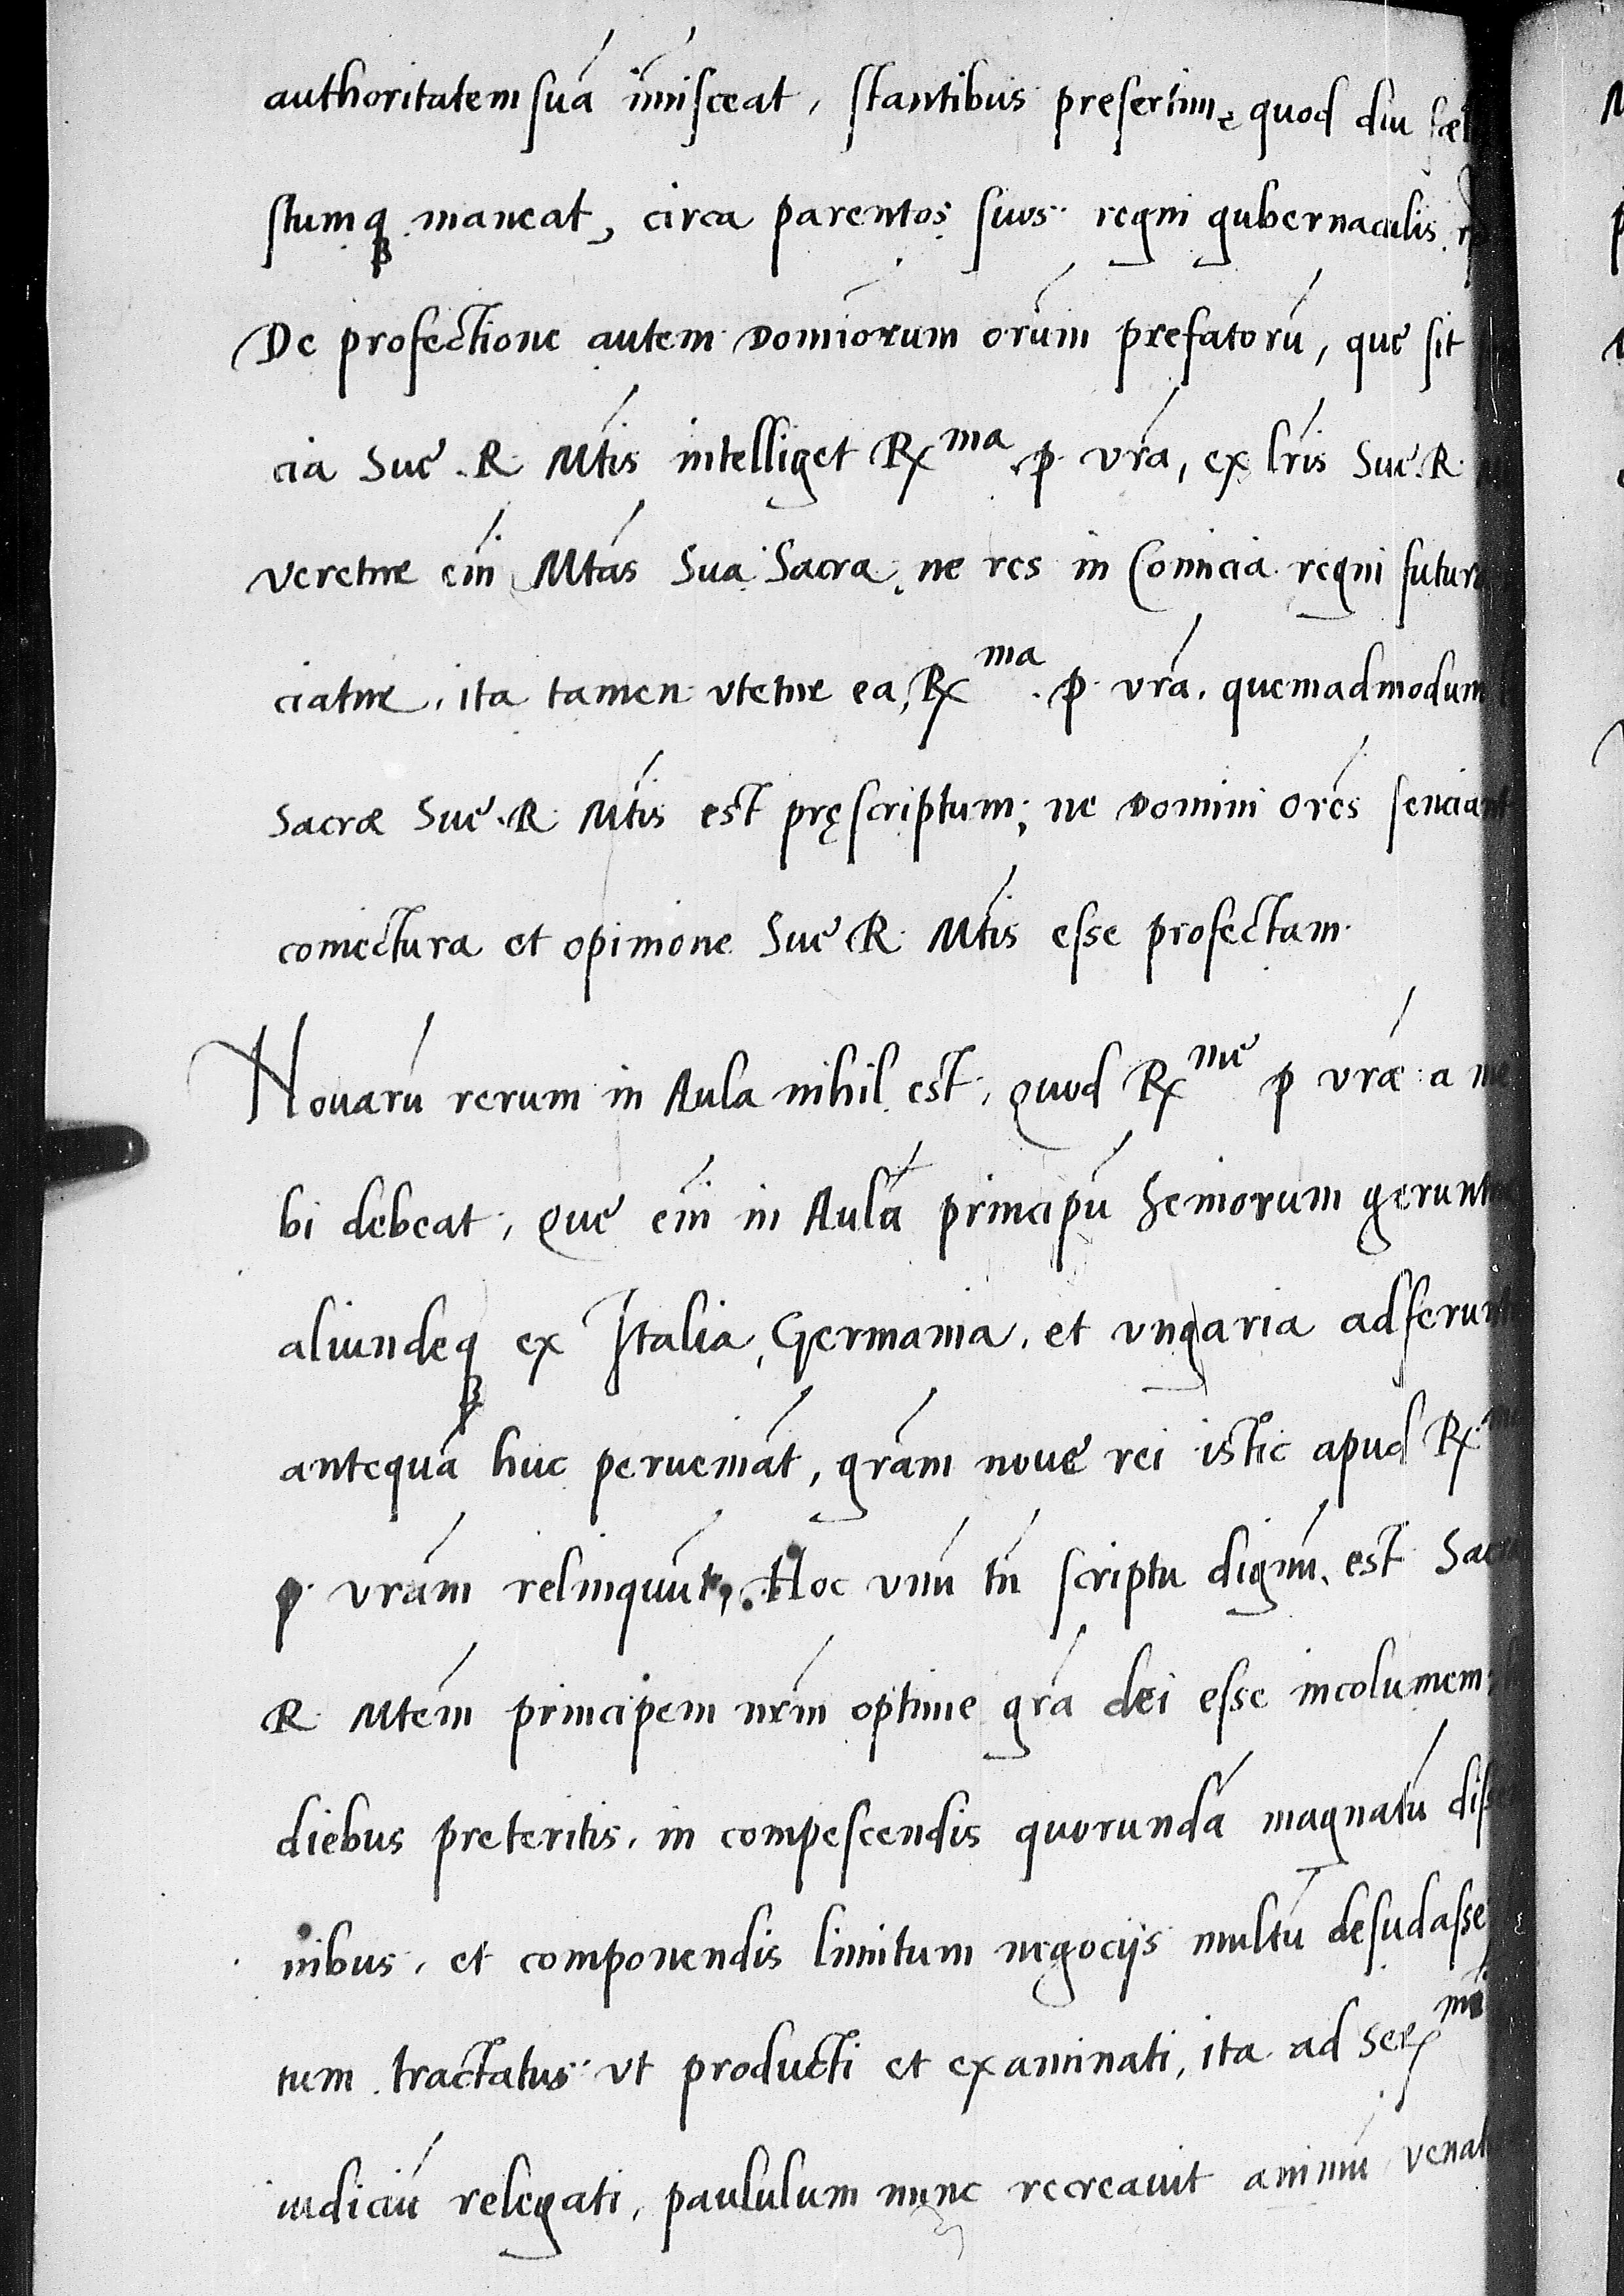 authoritatem suā im̄isceat, stantibus presertim, quod diu
stumq₃ maneat, circa parentes suos regni gubernaculis
De profectione autem Domiōrum orūm prefatorū, que sit
cia Sue R. Mtīs intelliget Rx^ma p. vrā, ex lrīs Sue R.
veretur eīn Mtās Sua Sacra, ne res in Comicia regni
ciatur, ita tamen vtetur ea, Rx^ma. p. vrā. quemadmodum
Sacræ Sue R. Mtīs est pręscriptum, ne Domini orēs senciant
coniectura et opinione Sue R. Mtīs esse profectam.
Nouarū rerum in Aula nihil est, quod Rx^me p vræ a
bi debeat, que eīn in Aulā principū Seniorum
aliundeq₃ ex Italia, Germania, et vngaria
antequā huc perueniāt, grām noue rei istic apud Rx
p. vrām relinquūt, Hoc vnū tn̄ scriptu dignū est
R. Mtēm principem nrm̄ optime grā dei esse incolumem
diebus preteritis, in compescendis quorundā magnatū
nibus, et componendis limitum negocijs multū desudasse
tum tractatus vt producti et examinati, ita ad Ser
iudiciū relegati, paululum nunc recreauit animū